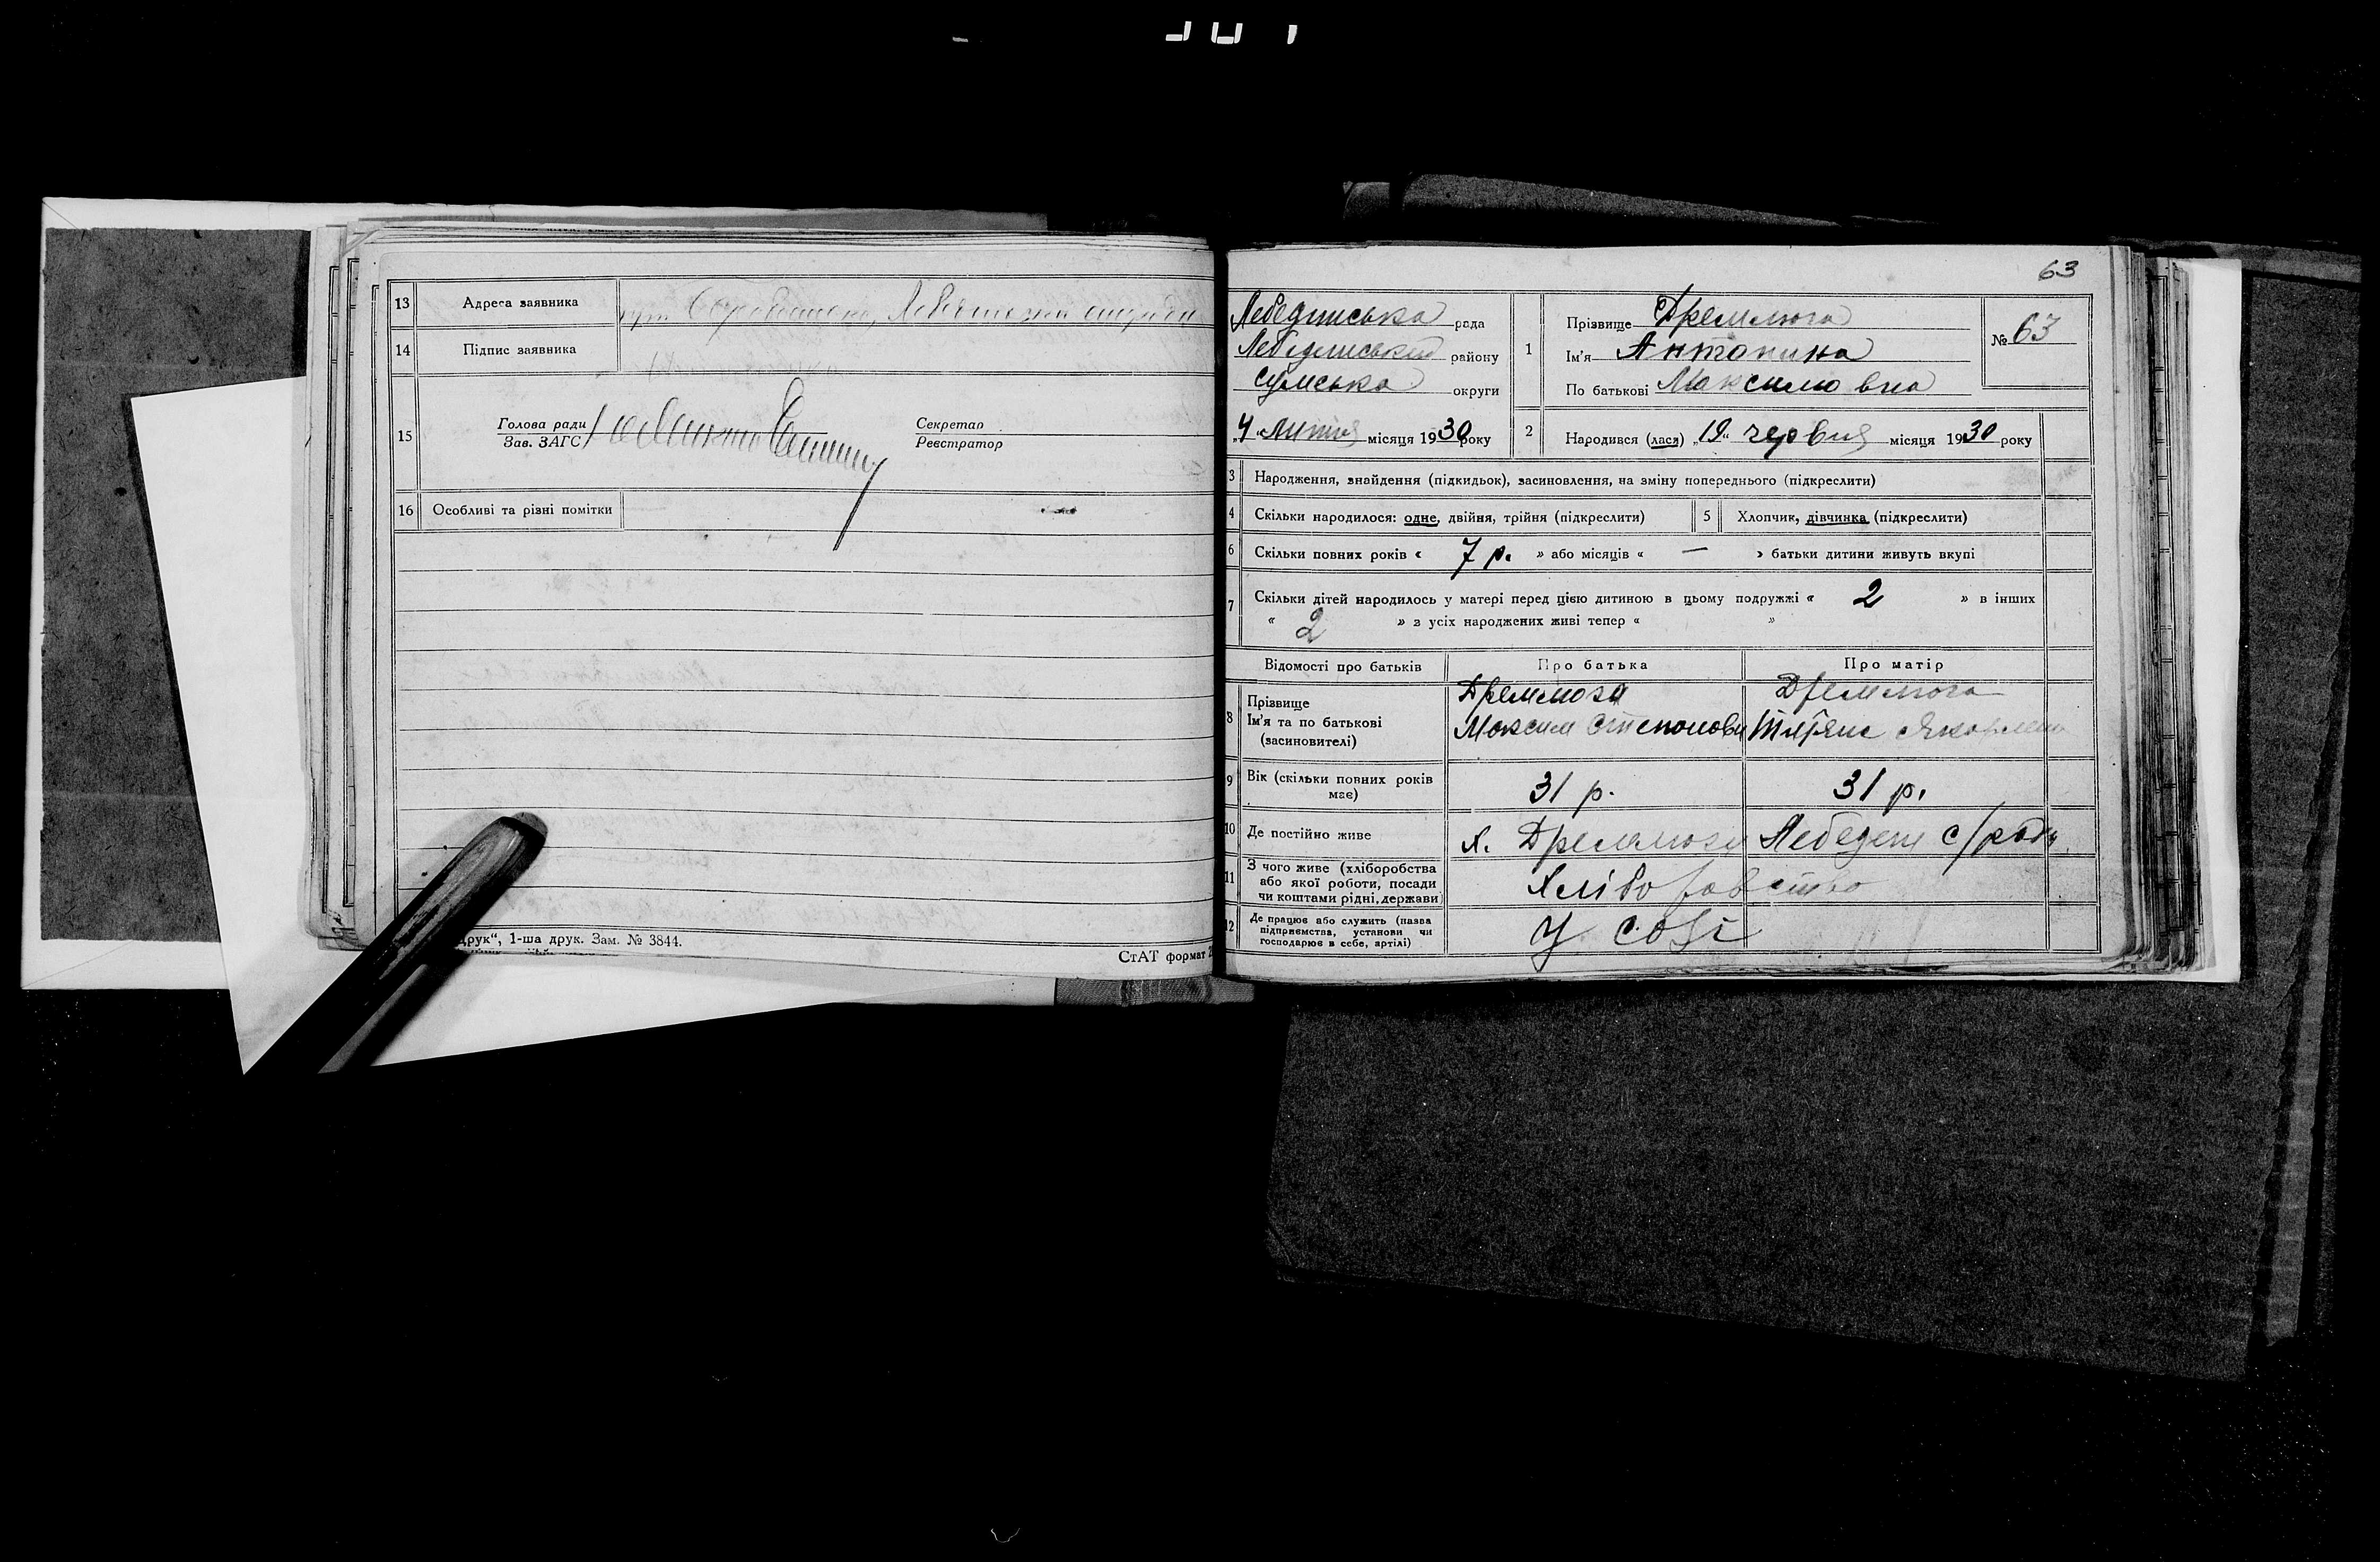 13 Адреса заявника
14 Підпис заявника
15 Голова ради
Зав. ЗАГС
Секретар
Реєстратор
16 Особливі та різні помітки
друк“, 1-ша друк. Зам. № 3844.
СтАТ формат
63
Лебединська рада
Лебединський району
Сумська округи
„4“ липня місяця 1930 року
1 Прізвище Дремлюга
Ім'я Антонина
По батькові Максимовна
№ 63
2 Народився (лася) „19“ червня місяця 1930 року
3 Народження, знайдення (підкидьок), засиновлення, на зміну попереднього (підкреслити)
4 Скільки народилося: одне, двійня, трійня (підкреслити)
5 Хлопчик, дівчинка (підкреслити)
6 Скільки повних років « 7 р. » або місяців « — » батьки дитини живуть вкупі
7 Скільки дітей народилось у матері перед цією дитиною в цьому подружжі « 2 » в інших
« 2 » з усіх народжених живі тепер « »
Відомості про батьків Про батька Про матір
8 Прізвище
Ім'я та по батькові
(засиновителі)
Дремлюга
Максим Степанови
Дремлюга
9 Вік (скільки повних років
має)
31 р. 31 р.
10 Де постійно живе
х. Дремлюги Лебедень с/ради
11 З чого живе (хліборобства
або якої роботи, посади
чи коштами рідні, держави)
Хлібо
12 Де працює або служить (назва
підприємства, установи чи
господарює в себе, артілі)
У собі